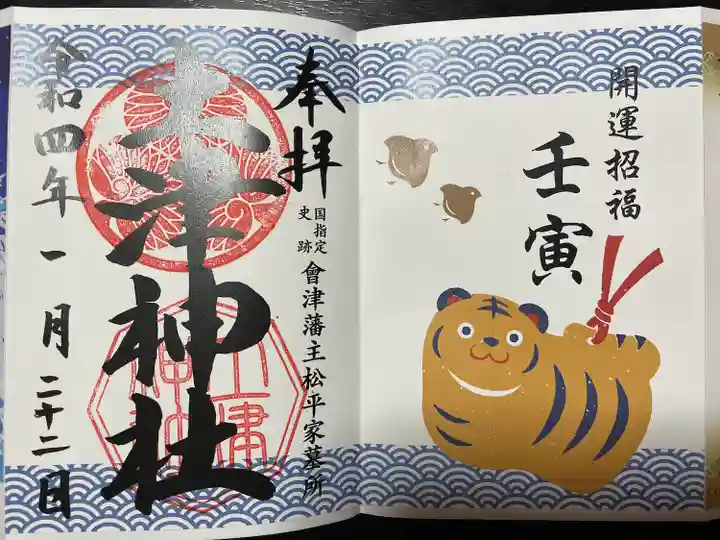 開運招福
壬寅
奉拝
国指定
史跡
會津藩主松平家墓所
土津神社
令和四年一月二十二日